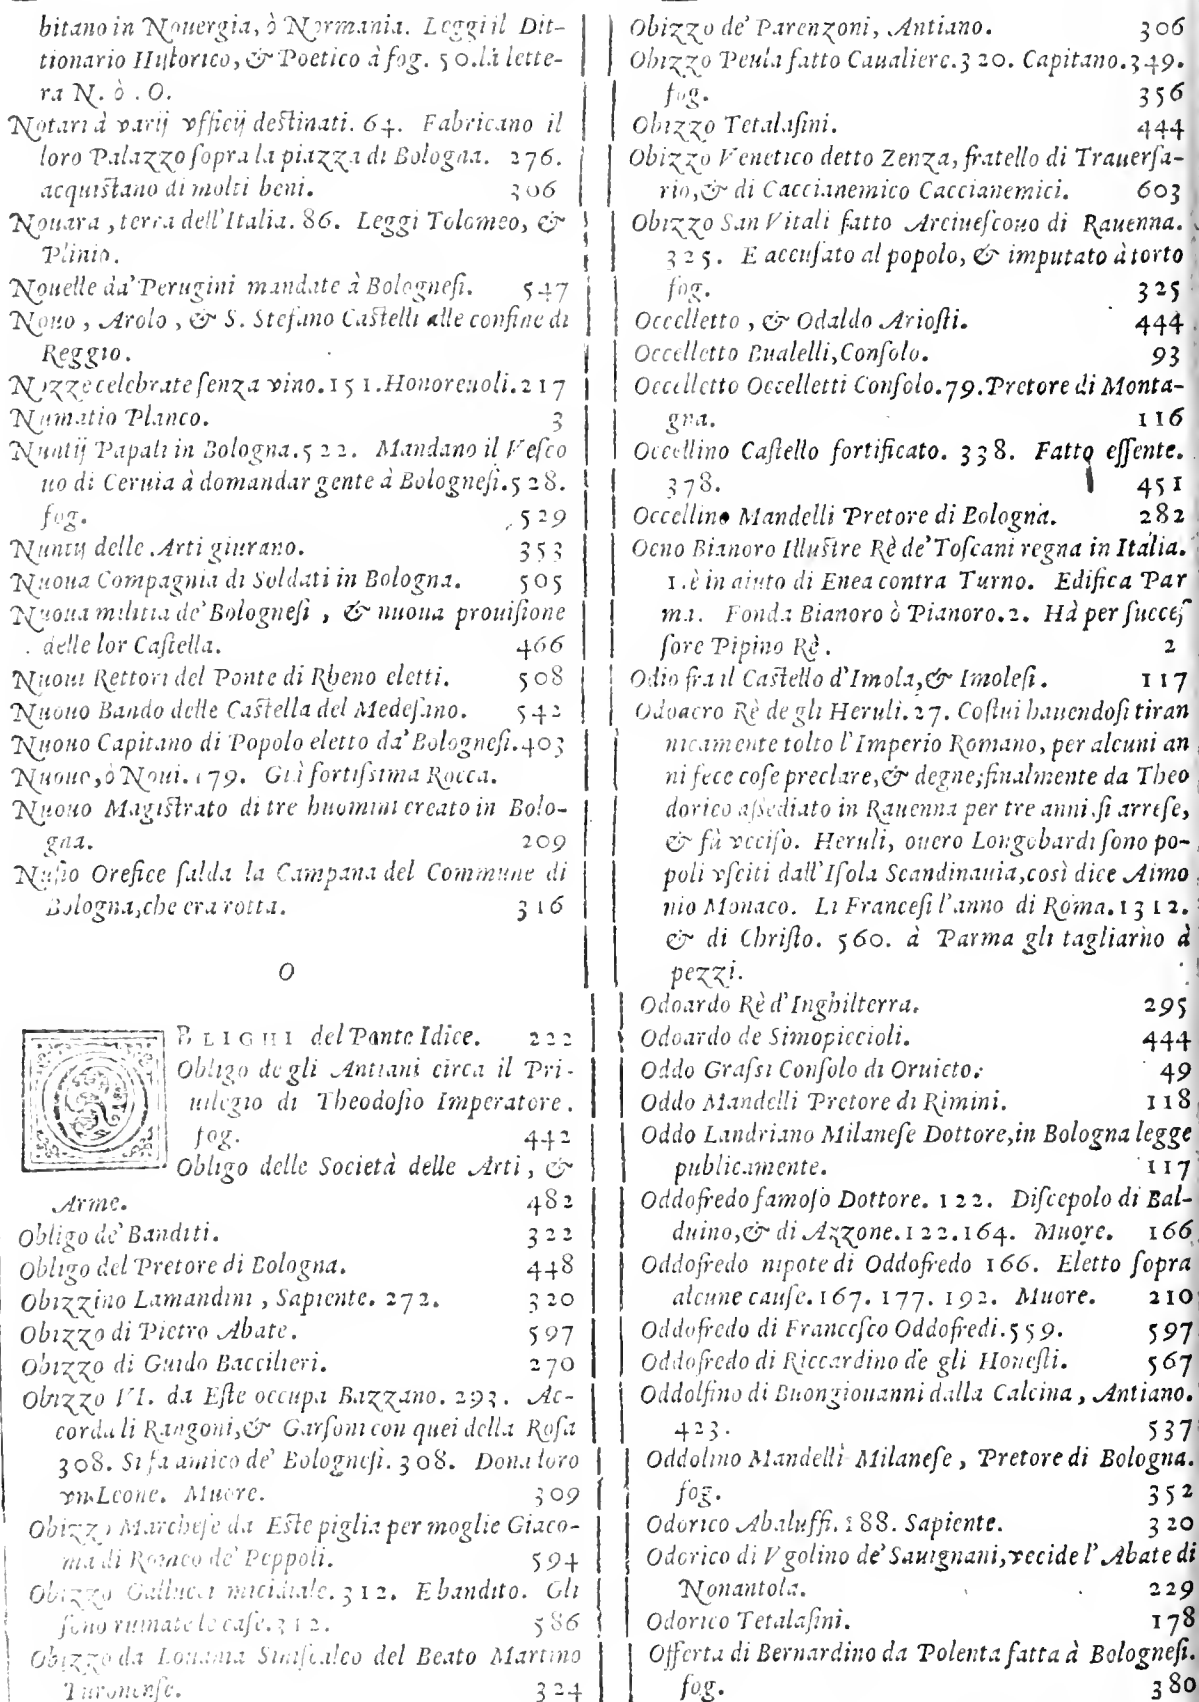 bitano in Nouergia, ò Normania. Leggi il Dit-
tionario Historico, & Poetico à fog. 50. là lette-
ra N. ò . O.
Notari à varij vfficij destinati. 64. Fabricano il
loro Palazzo sopra la piazza di Bologna. 276.
acquistano di molti beni. 306
Nouara, terra dell'Italia. 86. Leggi Tolomeo, &
Plinio.
Nouelle da' Perugini mandate à Bolognesi. 547
Nouo, Arolo, & S. Stefano Castelli alle confine di
Reggio.
Nozze celebrate senza vino. 151. Honoreuoli. 217
Numatio Planco. 3
Nuntij Papali in Bologna. 522. Mandano il Vesco
uo di Ceruia à domandar gente à Bolognesi. 528.
fog. 529
Nuntij delle Arti giurano. 353
Nuoua Compagnia di Soldati in Bologna. 505
Nuoua militia de' Bolognesi, & nuoua prouisione
delle lor Castella. 466
Nuoui Rettori del Ponte di Rheno eletti. 508
Nuouo Bando delle Castella del Medesano. 542
Nuouo Capitano di Popolo eletto da' Bolognesi. 403
Nuouo, ò Noui. 179. Già fortissima Rocca.
Nuouo Magistrato di tre huomini creato in Bolo-
gna. 209
Nusio Orefice salda la Campana del Commune di
Bologna, che era rotta. 316
O
OBLIGHI del Ponte Idice. 222
Obligo de gli Antiani circa il Pri-
uilegio di Theodosio Imperatore.
fog. 442
Obligo delle Società delle Arti, &
Arme. 482
Obligo de' Banditi. 322
Obligo del Pretore di Bologna. 448
Obizzino Lamandini, Sapiente. 272. 320
Obizzo di Pietro Abate. 597
Obizzo di Guido Baccilieri. 270
Obizzo VI. da Este occupa Bazzano. 293. Ac-
corda li Rangoni, & Garsoni con quei della Rosa
308. Si fa amico de' Bolognesi. 308. Dona loro
vn Leone. Muore. 309
Obizzo Marchese da Este piglia per moglie Giaco-
ma di Romeo de' Peppoli. 594
Obizzo Gallucci micidiale. 312. E bandito. Gli
sono ruinate le case. 312. 586
Obizzo da Louania Siniscalco del Beato Martino
Turonense. 324
Obizzo de' Parenzoni, Antiano. 306
Obizzo Peula fatto Caualiere. 320. Capitano. 349.
fog. 356
Obizzo Tetalasini. 444
Obizzo Venetico detto Zenza, fratello di Trauersa-
rio, & di Caccianemico Caccianemici. 603
Obizzo San Vitali fatto Arciuescouo di Rauenna.
325. E accusato al popolo, & imputato à torto
fog. 325
Occelletto, & Odaldo Ariosti. 444
Occelletto Bualelli, Consolo. 93
Occelletto Occelletti Consolo. 79. Pretore di Monta-
gna. 116
Occellino Castello fortificato. 338. Fatto essente.
378. 451
Occellino Mandelli Pretore di Bologna. 282
Ocno Bianoro Illustre Rè de' Toscani regna in Italia.
1. è in aiuto di Enea contra Turno. Edifica Par
ma. Fonda Bianoro ò Pianoro. 2. Hà per succes
sore Pipino Rè. 2
Odio fra il Castello d'Imola, & Imolesi. 117
Odoacro Rè de gli Heruli. 27. Costui hauendosi tiran
nicamente tolto l'Imperio Romano, per alcuni an
ni fece cose preclare, & degne; finalmente da Theo
dorico assediato in Rauenna per tre anni. si arrese,
& fù vcciso. Heruli, ouero Longobardi sono po-
poli vsciti dall'Isola Scandinauia, così dice Aimo
nio Monaco. Li Francesi l'anno di Roma. 1312.
& di Christo. 560. à Parma gli tagliarno à
pezzi.
Odoardo Rè d'Inghilterra. 295
Odoardo de Simopiccioli. 444
Oddo Grassi Consolo di Oruieto. 49
Oddo Mandelli Pretore di Rimini. 118
Oddo Landriano Milanese Dottore, in Bologna legge
publicamente. 117
Oddofredo famoso Dottore. 122. Discepolo di Bal-
duino, & di Azzone. 122. 164. Muore. 166
Oddofredo nipote di Oddofredo 166. Eletto sopra
alcune cause. 167. 177. 192. Muore. 210
Oddofredo di Francesco Oddofredi. 559. 597
Oddofredo di Riccardino de gli Honesti. 567
Oddolfino di Buongiouanni dalla Calcina, Antiano.
423. 537
Oddolino Mandelli Milanese, Pretore di Bologna.
fog. 352
Odorico Abaluffi. 188. Sapiente. 320
Odorico di Vgolino de' Sauignani, vccide l'Abate di
Nonantola. 229
Odorico Tetalasini. 178
Offerta di Bernardino da Polenta fatta à Bolognesi.
fog. 380